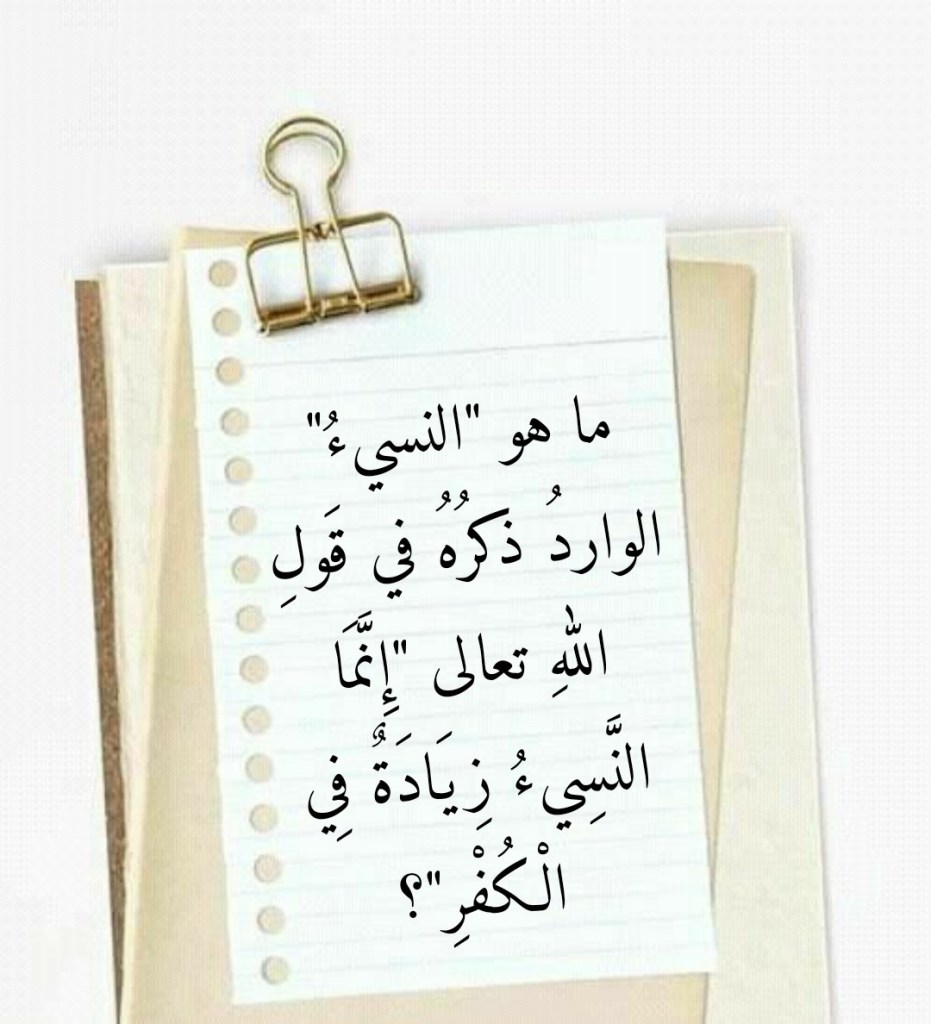 ما هو "النسيءُ"
الواردُ ذكرُهُ في قَولِ
اللهِ تعالى "إِنَّمَا
النَّسِيءُ زِيَادَةٌ فِي
الْكُفْرِ"؟